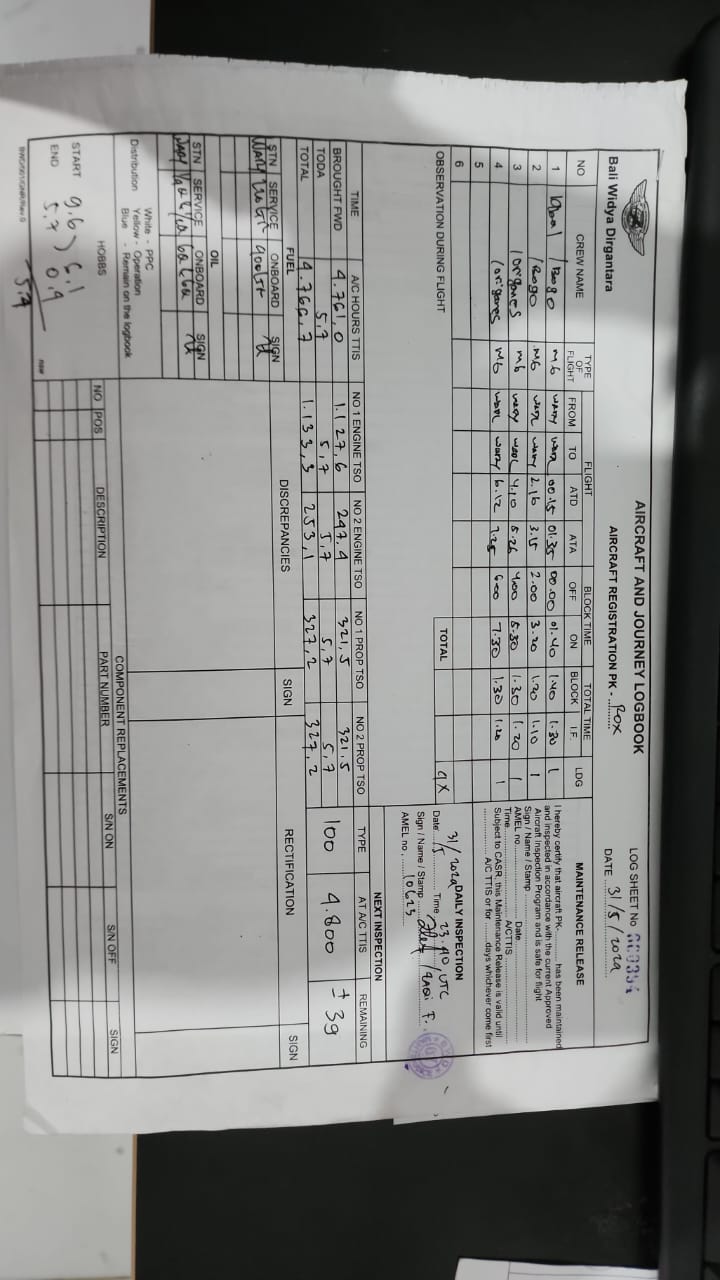 Bali Widya Dirgantara
AIRCRAFT AND JOURNEY LOGBOOK
AIRCRAFT REGISTRATION PK - ROX
LOG SHEET No
DATE 31/5/2024
NO CREW NAME TYPE OF FLIGHT FLIGHT BLOCK TIME TOTAL TIME LDG
FROM TO ATD ATA OFF ON BLOCK I.F.
1 Iqbal / Bogo M6 WARY WARL 00.15 01.35 00.00 01.40 1.40 1.30 1
2 / Bogo M6 WARL WARY 2.16 3.15 2.00 3.20 1.20 1.10 1
3 / Origenes M6 WARY WARL 4.10 5.26 4.00 5.30 1.30 1.20 1
4 / Origenes M6 WARL WARY 6.12 7.25 6.00 7.30 1.30 1.20 1
5
6
OBSERVATION DURING FLIGHT
TOTAL 4x
MAINTENANCE RELEASE
I hereby certify that aircraft PK- has been maintained
and inspected in accordance with the current Approved
Aircraft Inspection Program and is safe for flight
Sign / Name / Stamp
AMEL no. Date
Time A/C TTIS
Subject to CASR, this Maintenance Release is valid until
A/C TTIS or for days whichever come first
DAILY INSPECTION
Date 31/5 2024 Time 23.40 UTC
Sign / Name / Stamp
AMEL no. 10623
TIME A/C HOURS TTIS NO 1 ENGINE TSO NO 2 ENGINE TSO NO 1 PROP TSO NO 2 PROP TSO
BROUGHT FWD 4.761,0 1.127,6 247,4 321,5 321,5
TODA 5,7 5,7 5,7 5,7 5,7
TOTAL 4.766,7 1.133,3 253,1 327,2 327,2
NEXT INSPECTION
TYPE AT A/C TTIS REMAINING
100 4.800 ± 39
FUEL
STN SERVICE ONBOARD SIGN
WARY
OIL
STN SERVICE ONBOARD SIGN
WARY
DISCREPANCIES SIGN RECTIFICATION SIGN
Distribution White - PPC
Yellow - Operation
Blue - Remain on the logbook
COMPONENT REPLACEMENTS
NO POS DESCRIPTION PART NUMBER S/N ON S/N OFF SIGN
HOBBS
START 9.6 > 6.1
END 5.7 0.4
5.7